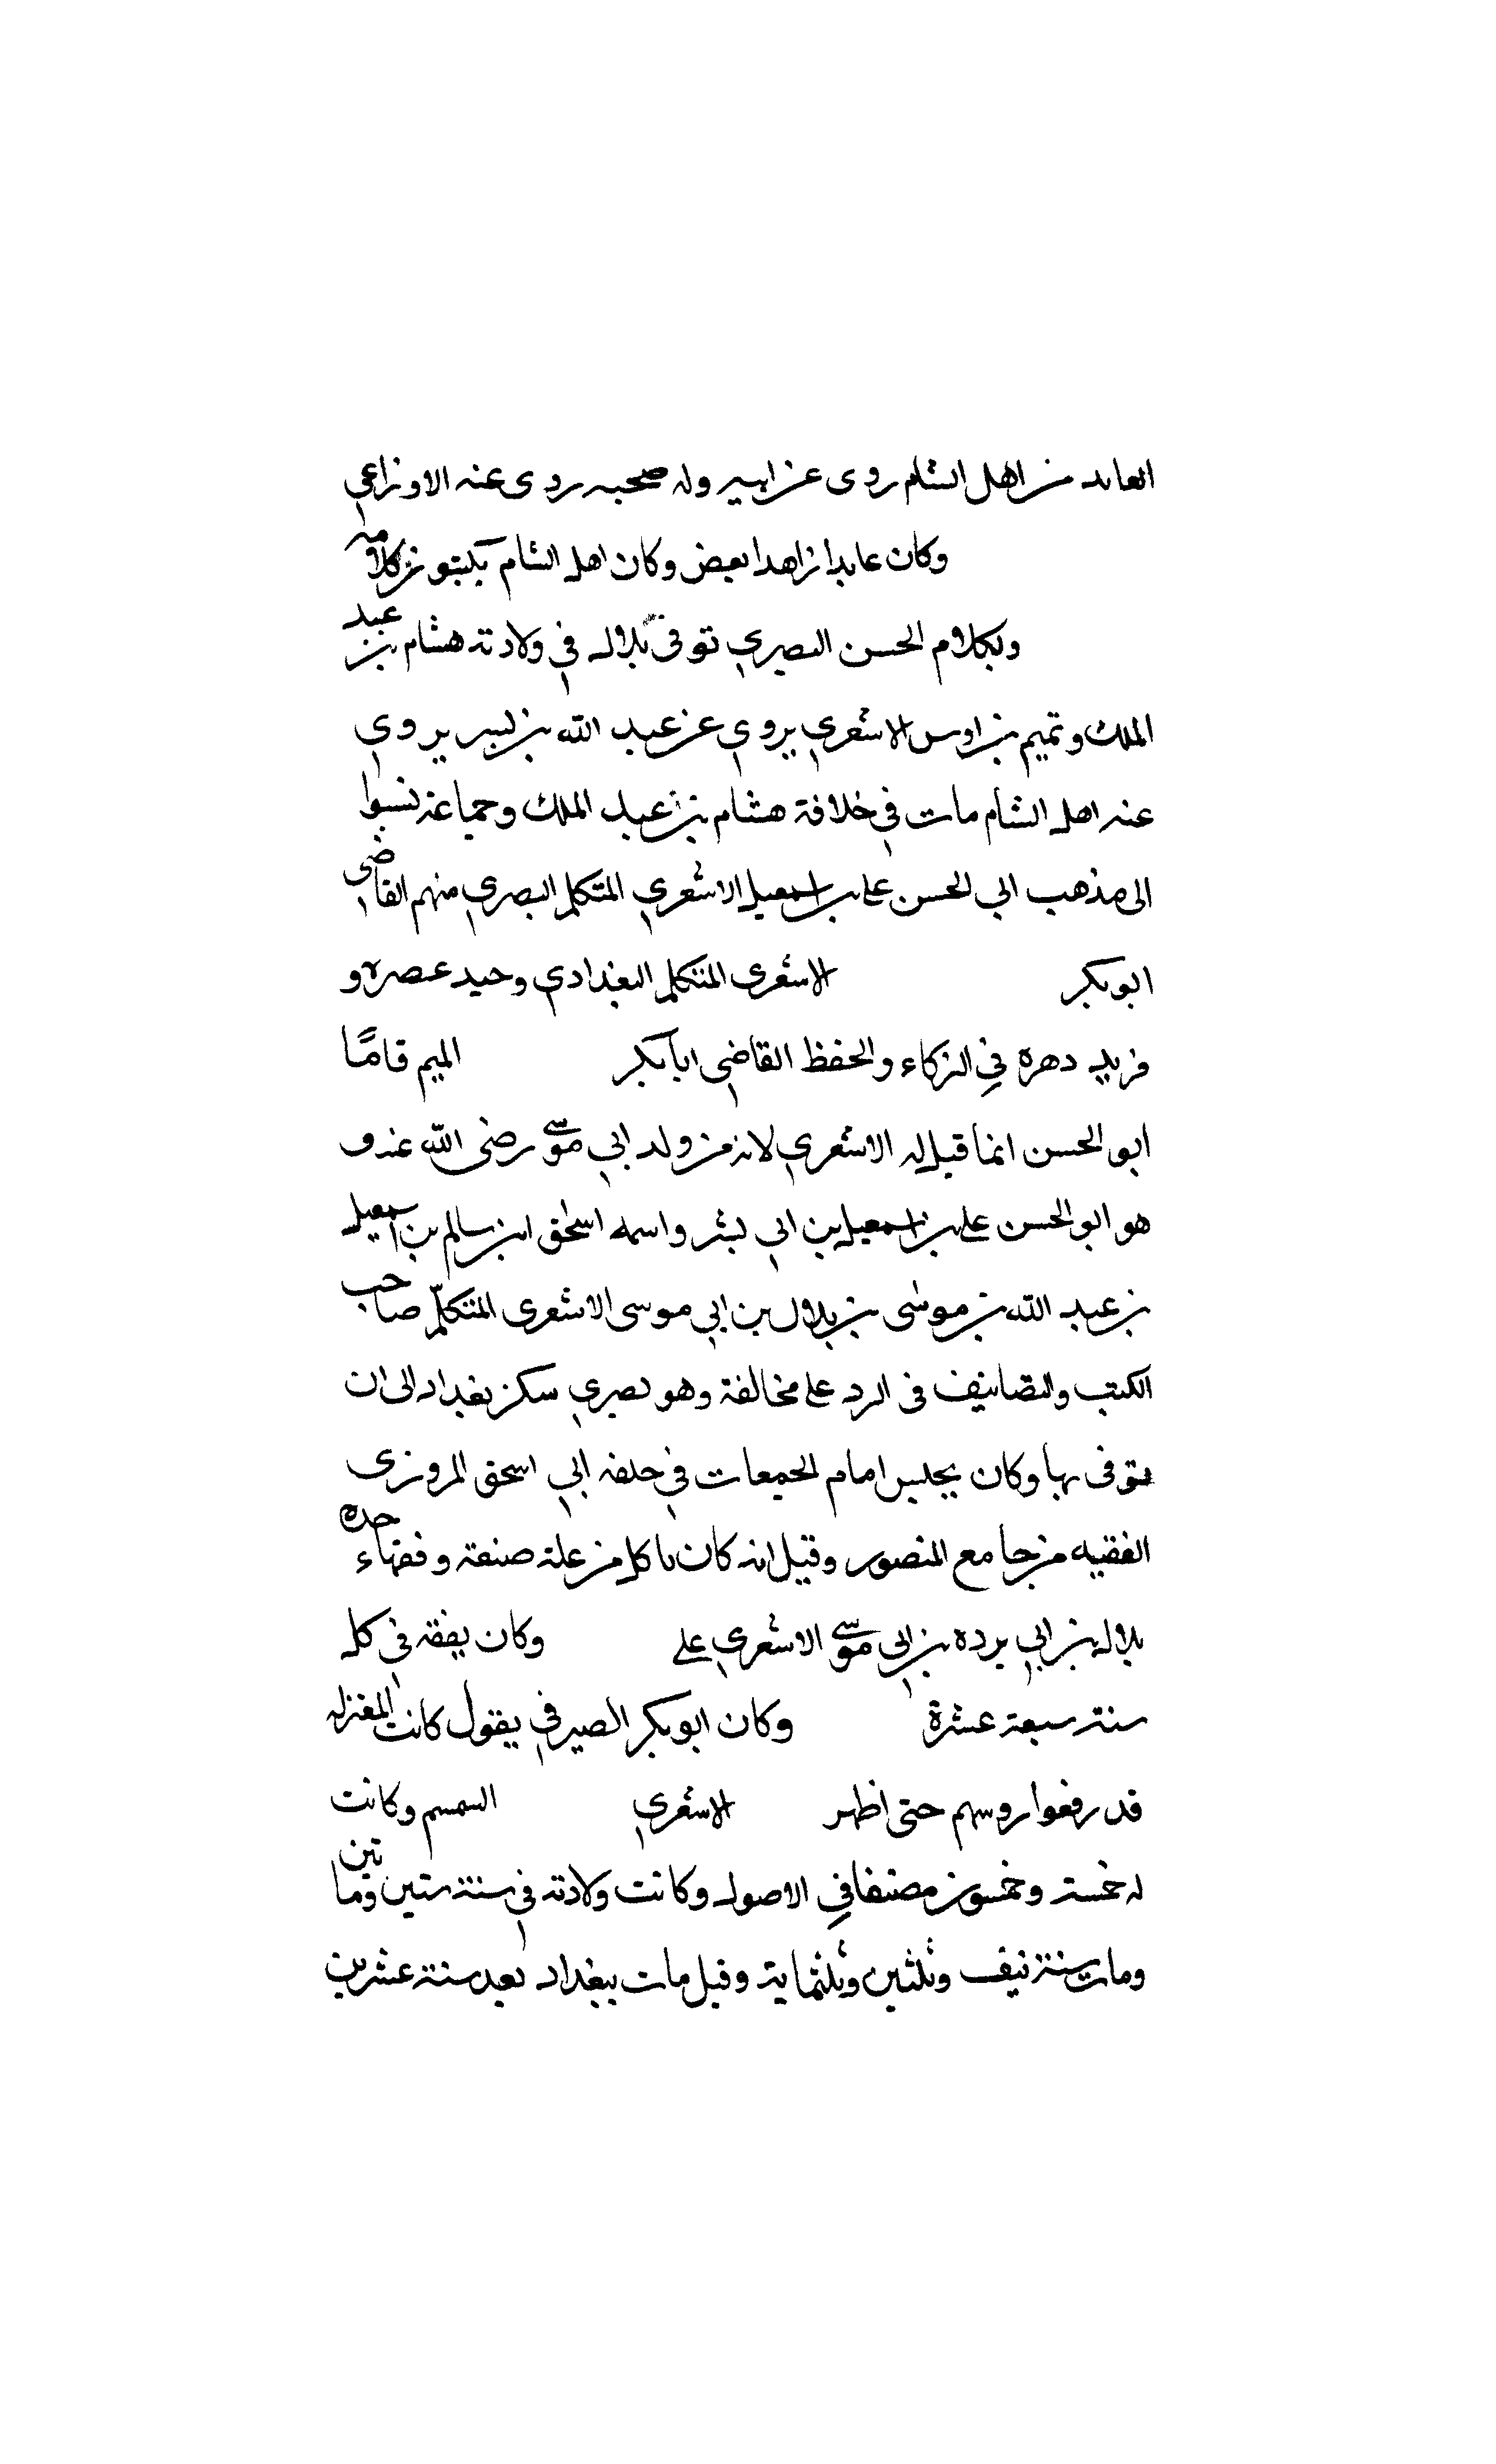 العابد من اهل الشام روى عن ابيه وله صحبه روى عنه الاوزاعي
وكان عابدا زاهدا يعض وكان اهل الشام يكتبون كلامه
وبكلام الحسن البصري توفى بلال في ولادته هشام بن عبد
الملك وتميم بن اوس الاشعري يروي عن عبد الله بن بسر يروي
عنه اهل الشام مات في خلافة هشام بن عبد الملك وجماعة نسبوا
الى مذهب ابي الحسن علي بن اسمعيل الاشعري المتكلم البصري منهم القاضي
ابو بكر الاشعرى المتكلم البغدادي وحيد عصره و
فريد دهره في الزكاء والحفظ القاضي ابا بكر الميم قامًا
ابو الحسن انما قيل له الاشعري لانه من ولد ابي موسى رضى الله عنه و
هو ابو الحسن علي بن اسمعيل بن ابي بشر واسمه اسحق ابن سالم بن اسمعيل
بن عبد الله بن موسى بن بلال بن ابي موسى الاشعرى المتكلّم صاحب
الكتب والتصانيف فى الرد على مخالفة وهو بصري سكن بغداد الى ان
توفى بها وكان يجلس امام الجمعات في حلقه ابي اسحق المروزى
الفقيه من جامع المنصور وقيل انه كان ياكل من غلة صنعة وفقهاء جده
بلال بن ابي برده بن ابى موسى الاشعري على وكان يفقه في كل
سنة سبعة عشرة وكان ابو بكر الصيرفي يقول كانت المعتزله
قد رفعوا روسهم حتى اظهر الاشعري السمسم وكانت
له خمسة وخمسون مصنفا في الاصول وكانت ولادته في سنة ستين ومائتين
ومات سنة نيف وثلثين وثلثماية وقيل مات ببغداد بعد سنة عشرين